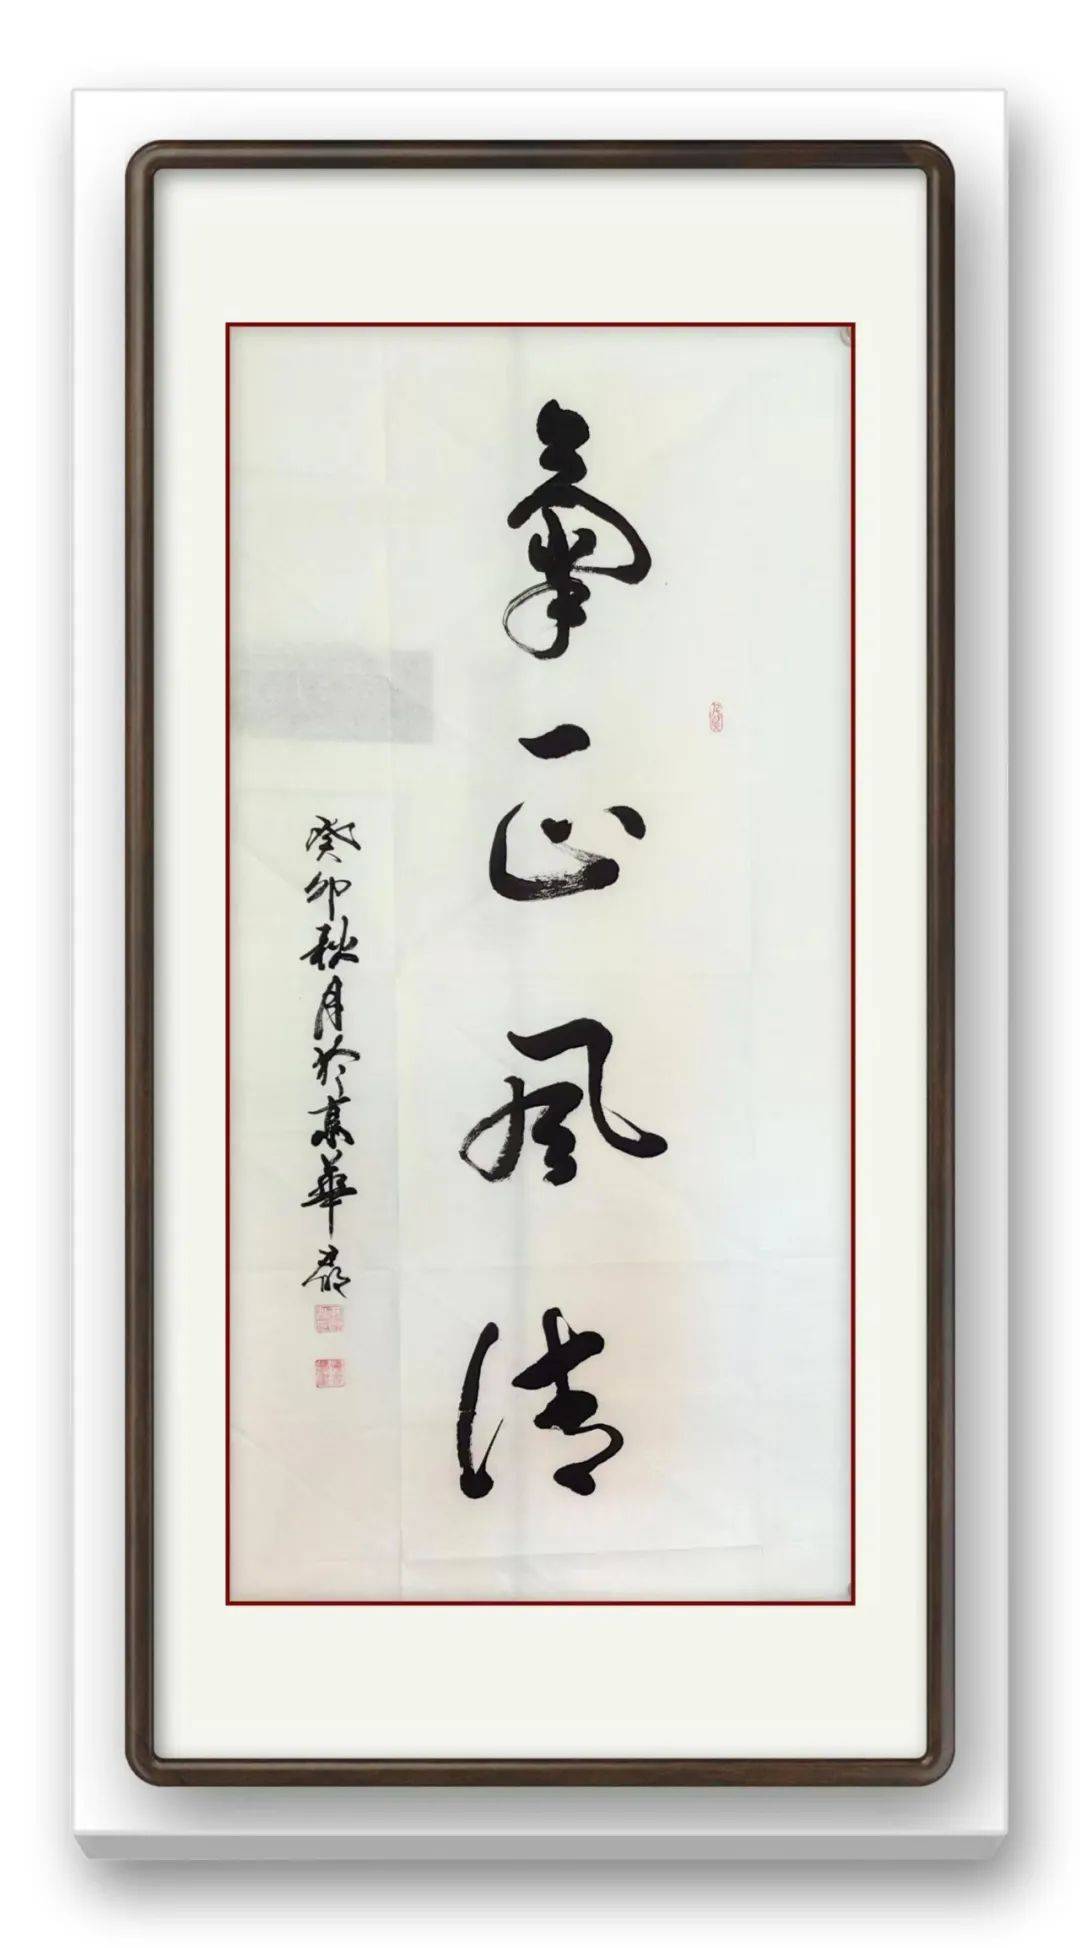 氣正風清
癸卯秋月於京華